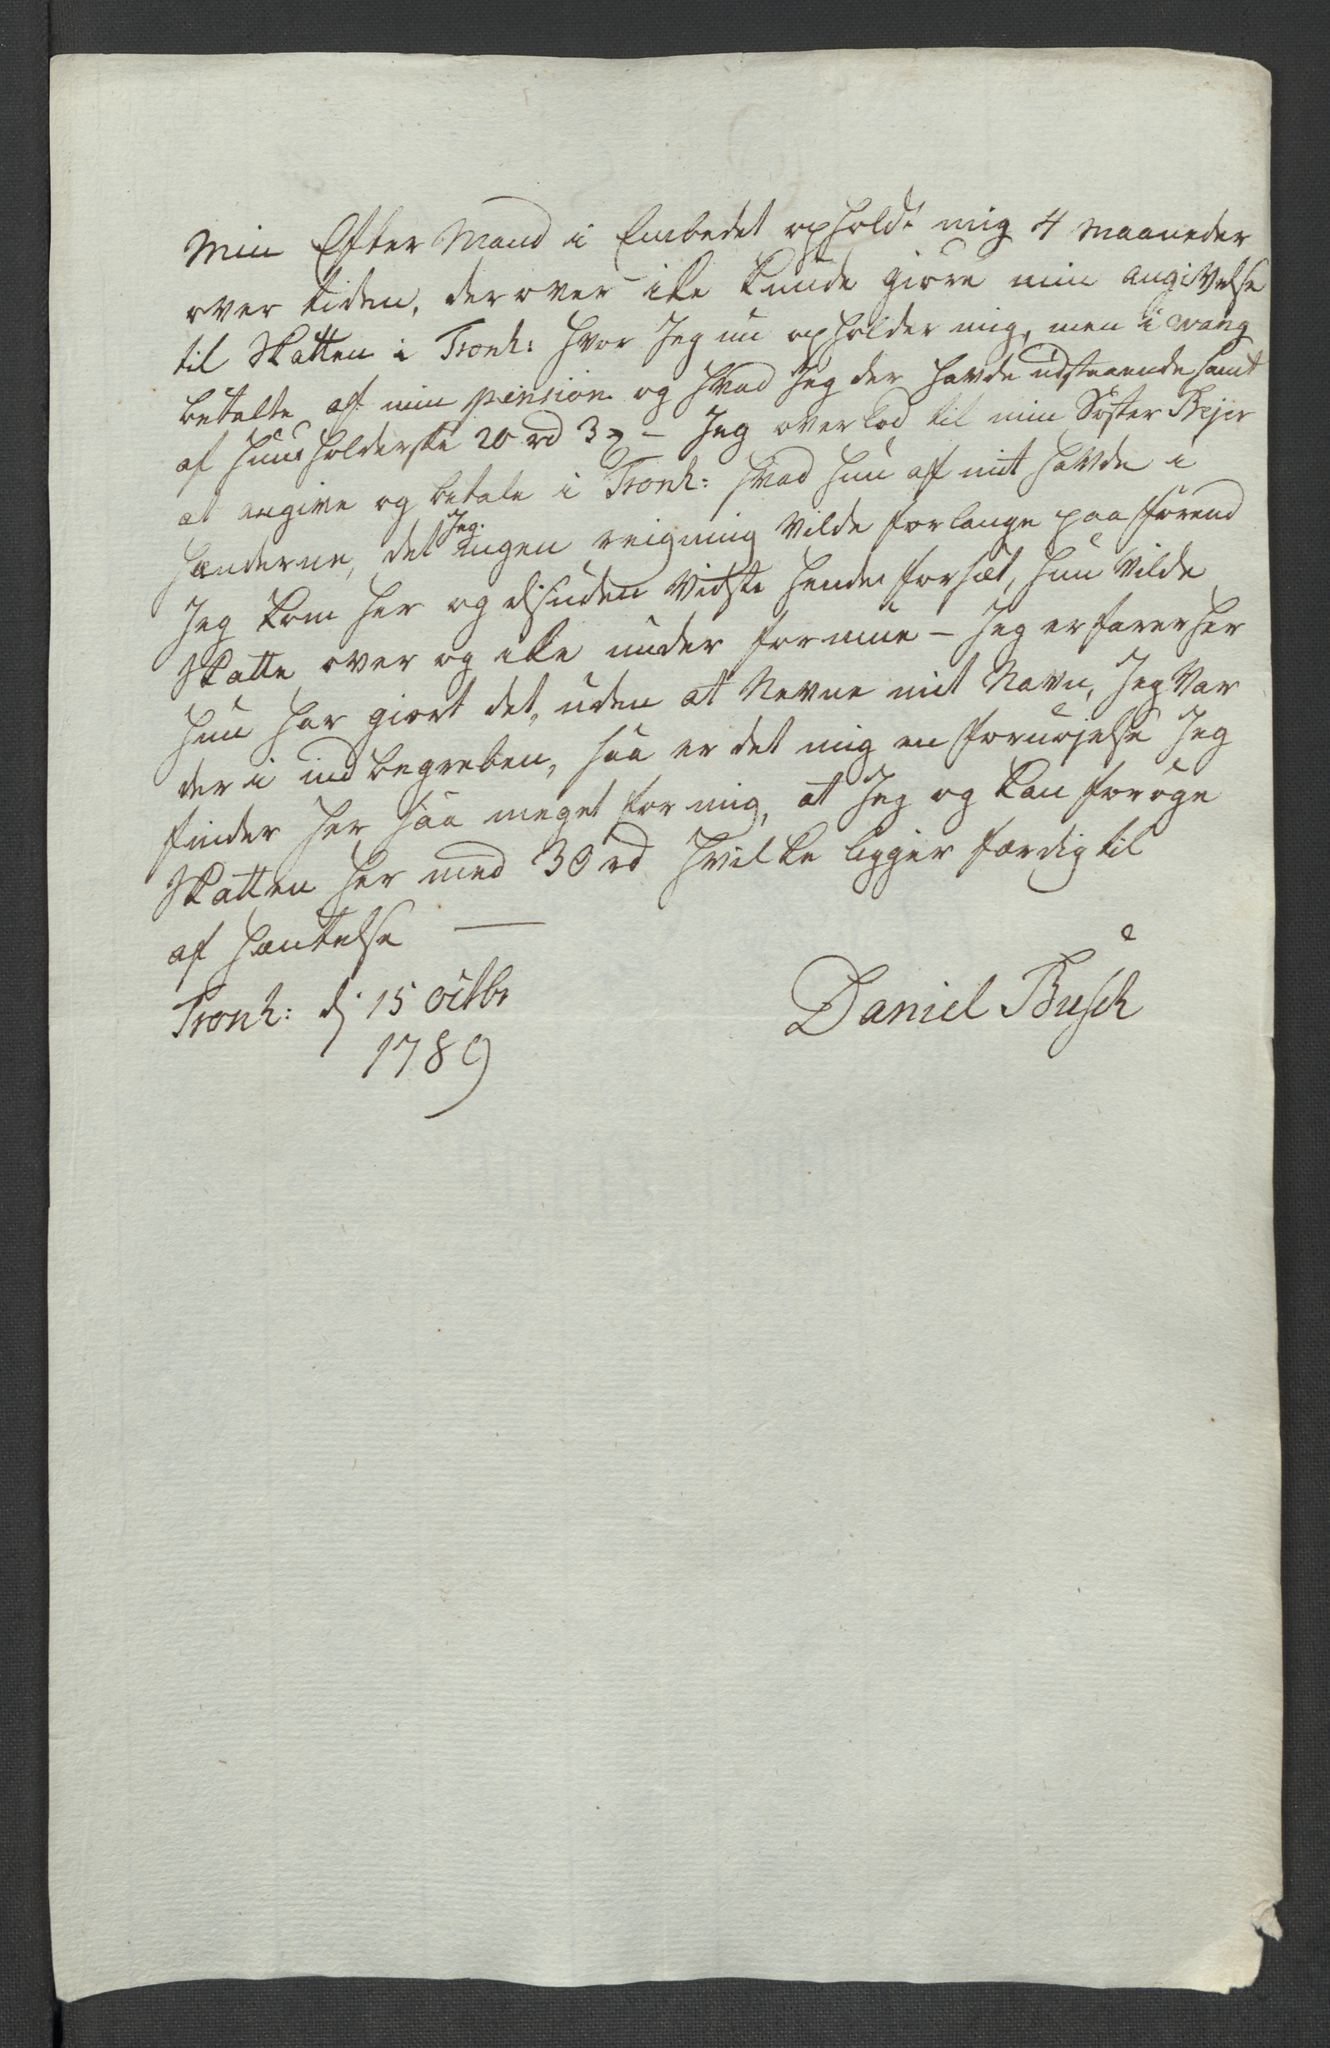 Min Efter Mand i Embedet opholdt mig 4 Maaneder
over tiden, derover ike kunde giøre min Angivelse
til Skatten i Tronh: hvor Jeg nu opholder mig, men i wang
betalte af min pension og hvad Jeg der havde udstaaende samt
af huusholderske 20 rd 3 ƶ – Jeg overlod til min Søster Bejer
at angive og betale i Tronh: hvad hun af mit havde i
hænderne, det Jeg ingen reigning vilde forlange paa førend
Jeg kom her og desuden vidste hendes forsæt, hun vilde
skatte over og ike under formue – Jeg erfarer her
hun har giort det, uden at Nevne mit Navn, Jeg var
deri indbegreben, saa er det mig en fornøjelse Jeg
finder her saa meget for mig, at Jeg og kan forøge
Skatten her med 30 rd hvilke ligger færdig til
afhæntelse —
Tronh: d: 15 octbr
1789
Daniel Busch